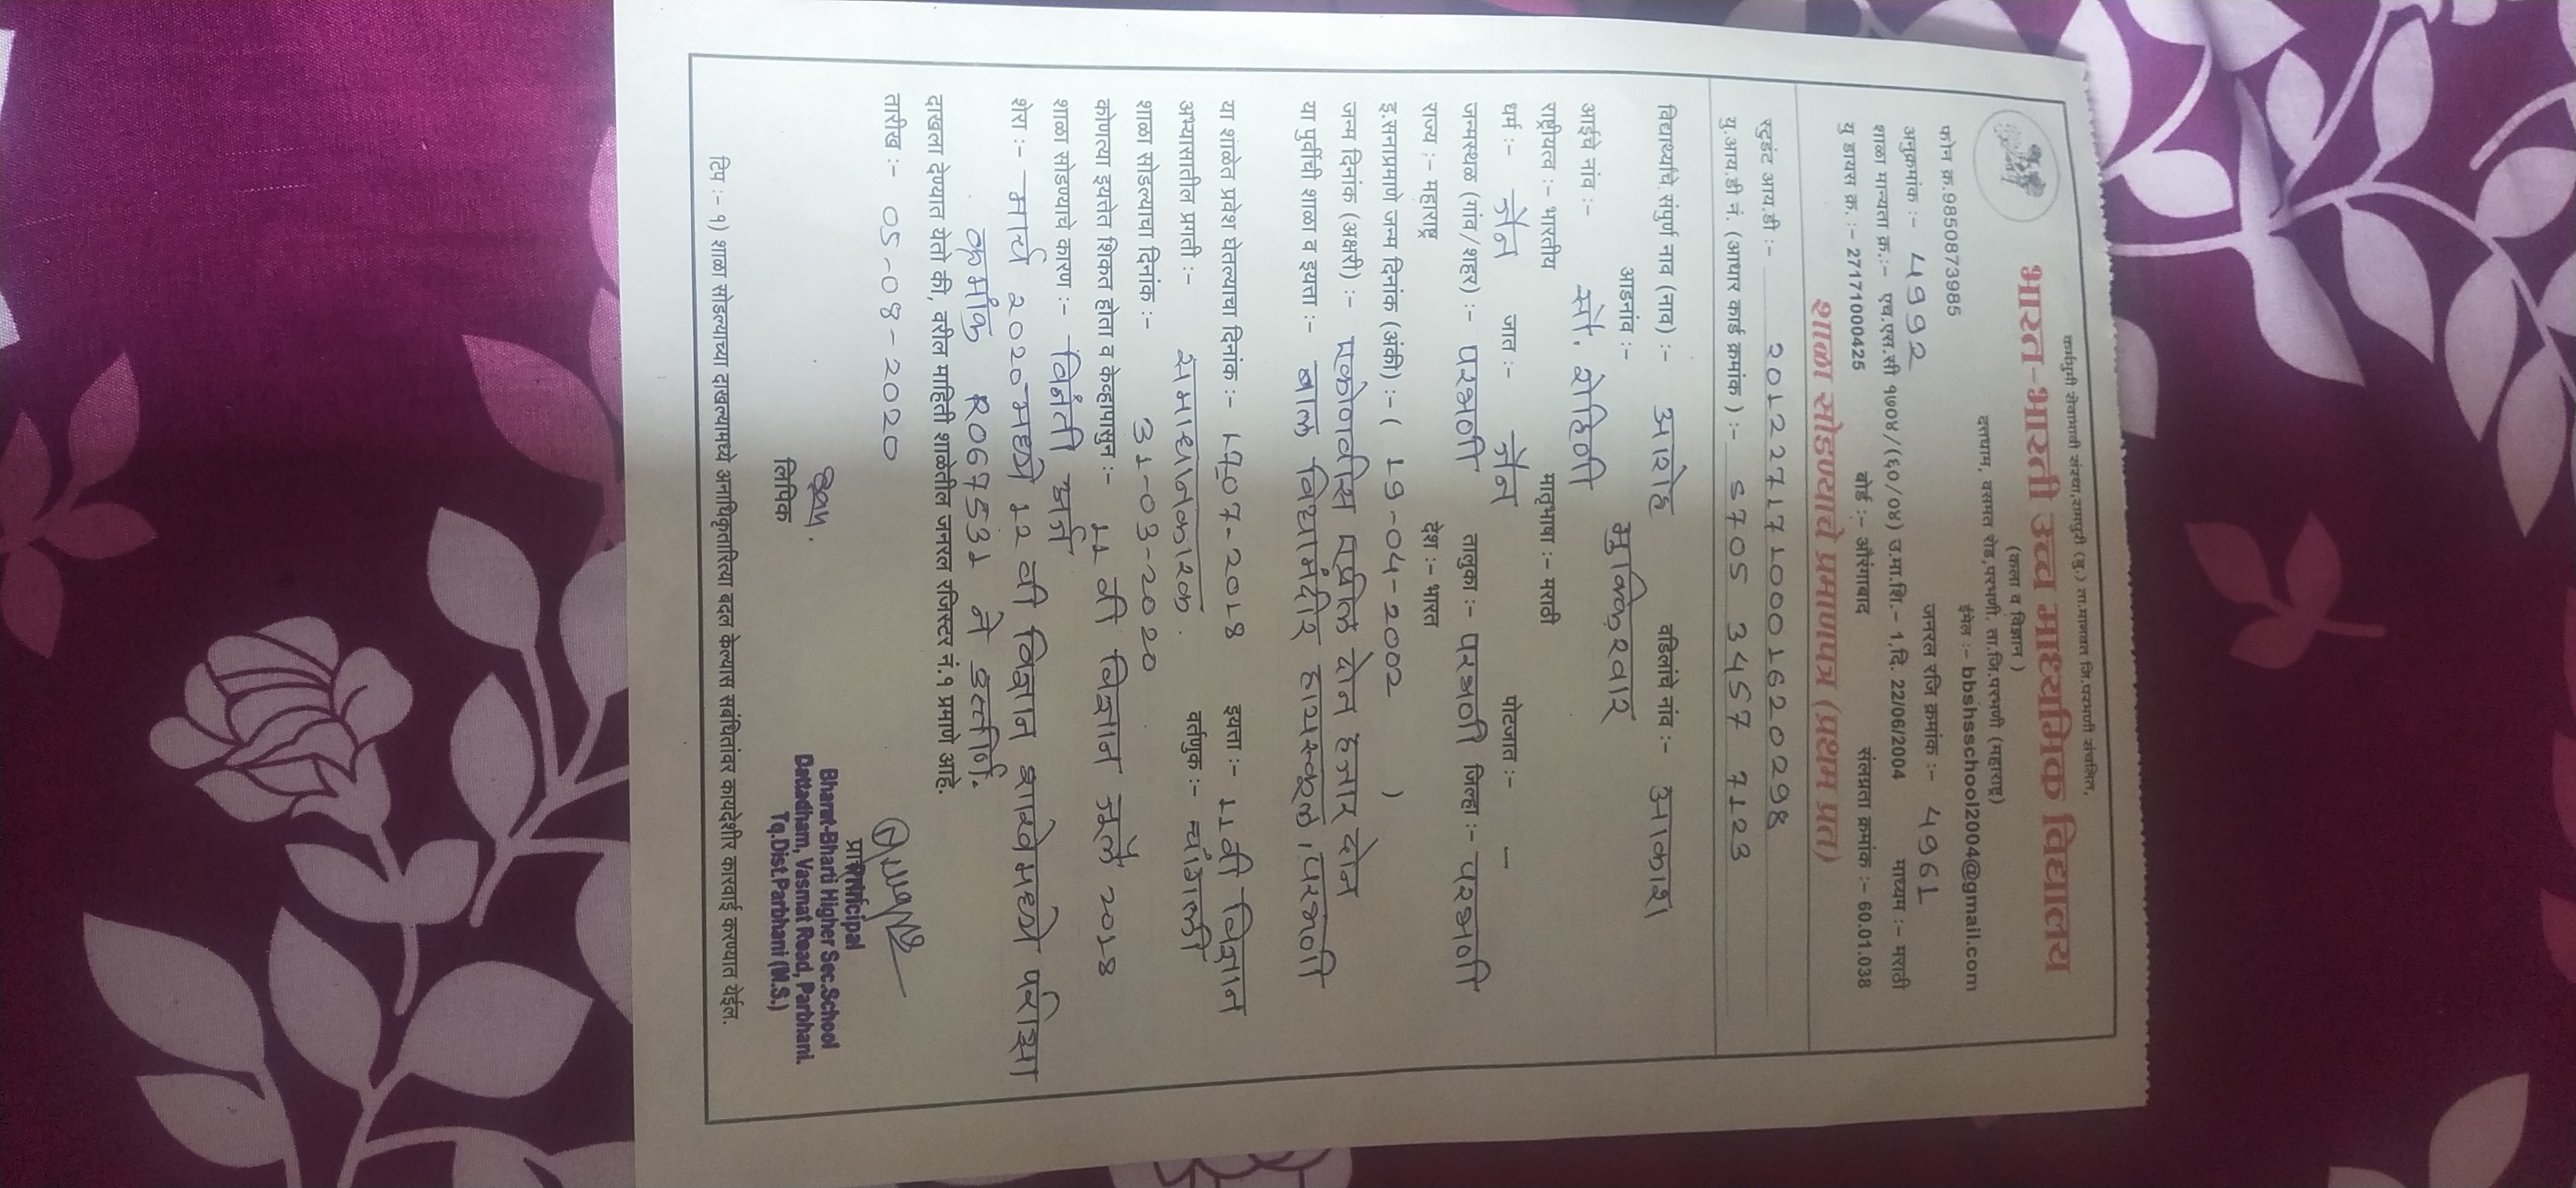 कर्मभुमी सेवाभावी संस्था,रामपुरी (बु.) ता.मानवत जि.परभणी संचलित,
भारत-भारती उच्च माध्यमिक विद्यालय
(कला व विज्ञान )
दत्तधाम, वसमत रोड,परभणी. ता.जि.परभणी (महाराष्ट्र)
फोन क्र.9850873985 ईमेल :- bbshsschool2004@gmail.com
अनुक्रमांक :- 4992 जनरल रजि क्रमांक :- 4961
शाळा मान्यता क्र.:- एच.एस.सी १७०४/(६०/०४) उ.मा.शि.- 1,दि. 22/06/2004 माध्यम :- मराठी
यु डायस क्र.:- 27171000425 बोर्ड :- औरंगाबाद संलग्नता क्रमांक :- 60.01.038
शाळा सोडण्याचे प्रमाणपत्र (प्रथम प्रत)
स्टुडंट आय.डी :- 2012271710001620298
यु.आय.डी नं. (आधार कार्ड क्रमांक ) :- 5705 3457 7123
विद्यार्थ्याचे संपुर्ण नाव (नाव) :- आरोह वडिलांचे नांव :- आकाश
आडनांव :- मुक्किरवार
आईचे नांव :- सौ. रोहिणी
राष्ट्रीयत्व :- भारतीय मातृभाषा :- मराठी
धर्म :- जैन जात :- जैन पोटजात :- -
जन्मस्थळ (गांव/शहर) :- परभणी तालुका :- परभणी जिल्हा :- परभणी
राज्य :- महाराष्ट्र देश :- भारत
इ.सनाप्रमाणे जन्म दिनांक (अंकी) :- ( 19-04-2002 )
जन्म दिनांक (अक्षरी) :- एकोणवीस एप्रील दोन हजार दोन
या पुर्वीची शाळा व इयत्ता :- बाल विद्यामंदीर हायस्कूल, परभणी
या शाळेत प्रवेश घेतल्याचा दिनांक :- 17-07-2018 इयत्ता :- 11 वी विज्ञान
अभ्यासातील प्रगती :- समाधानकारक. वर्तणुक :- चांगली
शाळा सोडल्याचा दिनांक :- 31-03-2020
कोणत्या इयत्तेत शिकत होता व केव्हापासुन :- 11 वी विज्ञान जुलै 2018
शाळा सोडण्याचे कारण :- विनंती अर्ज
शेरा :- मार्च 2020मध्ये 12 वी विज्ञान शाखेमध्ये परीक्षा
क्रमांक R067531 ने उत्तीर्ण.
दाखला देण्यात येतो की, वरील माहिती शाळेतील जनरल रजिस्टर नं.१ प्रमाणे आहे.
तारीख :- 05-08-2020
लिपिक
Principal
Bharat-Bharti Higher Sec.School
Dattadham, Vasmat Road, Parbhani.
Tq.Dist.Parbhani (M.S.)
टिप :- १) शाळा सोडल्याच्या दाखल्यामध्ये अनाधिकृतरित्या बदल केल्यास संबंधितांवर कायदेशीर कारवाई करण्यात येईल.